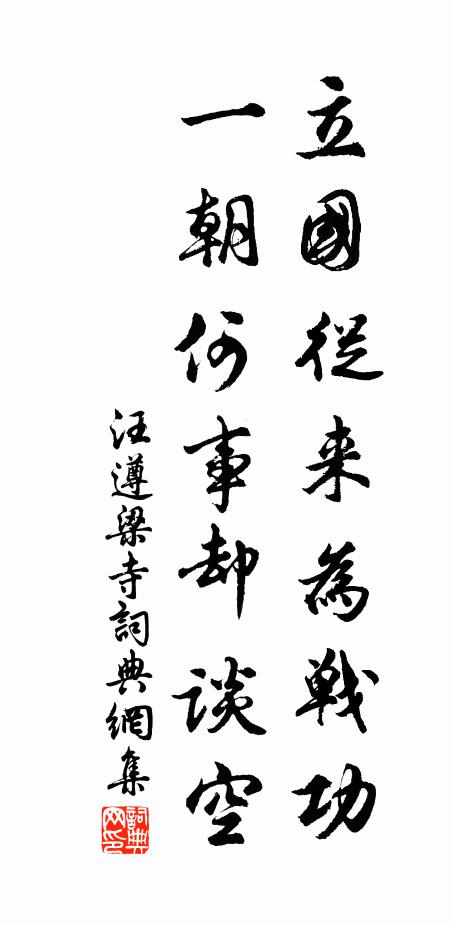 立國從来為戰功
一朝何事却談空
汪遵梁寺詞典網集
詞典网印